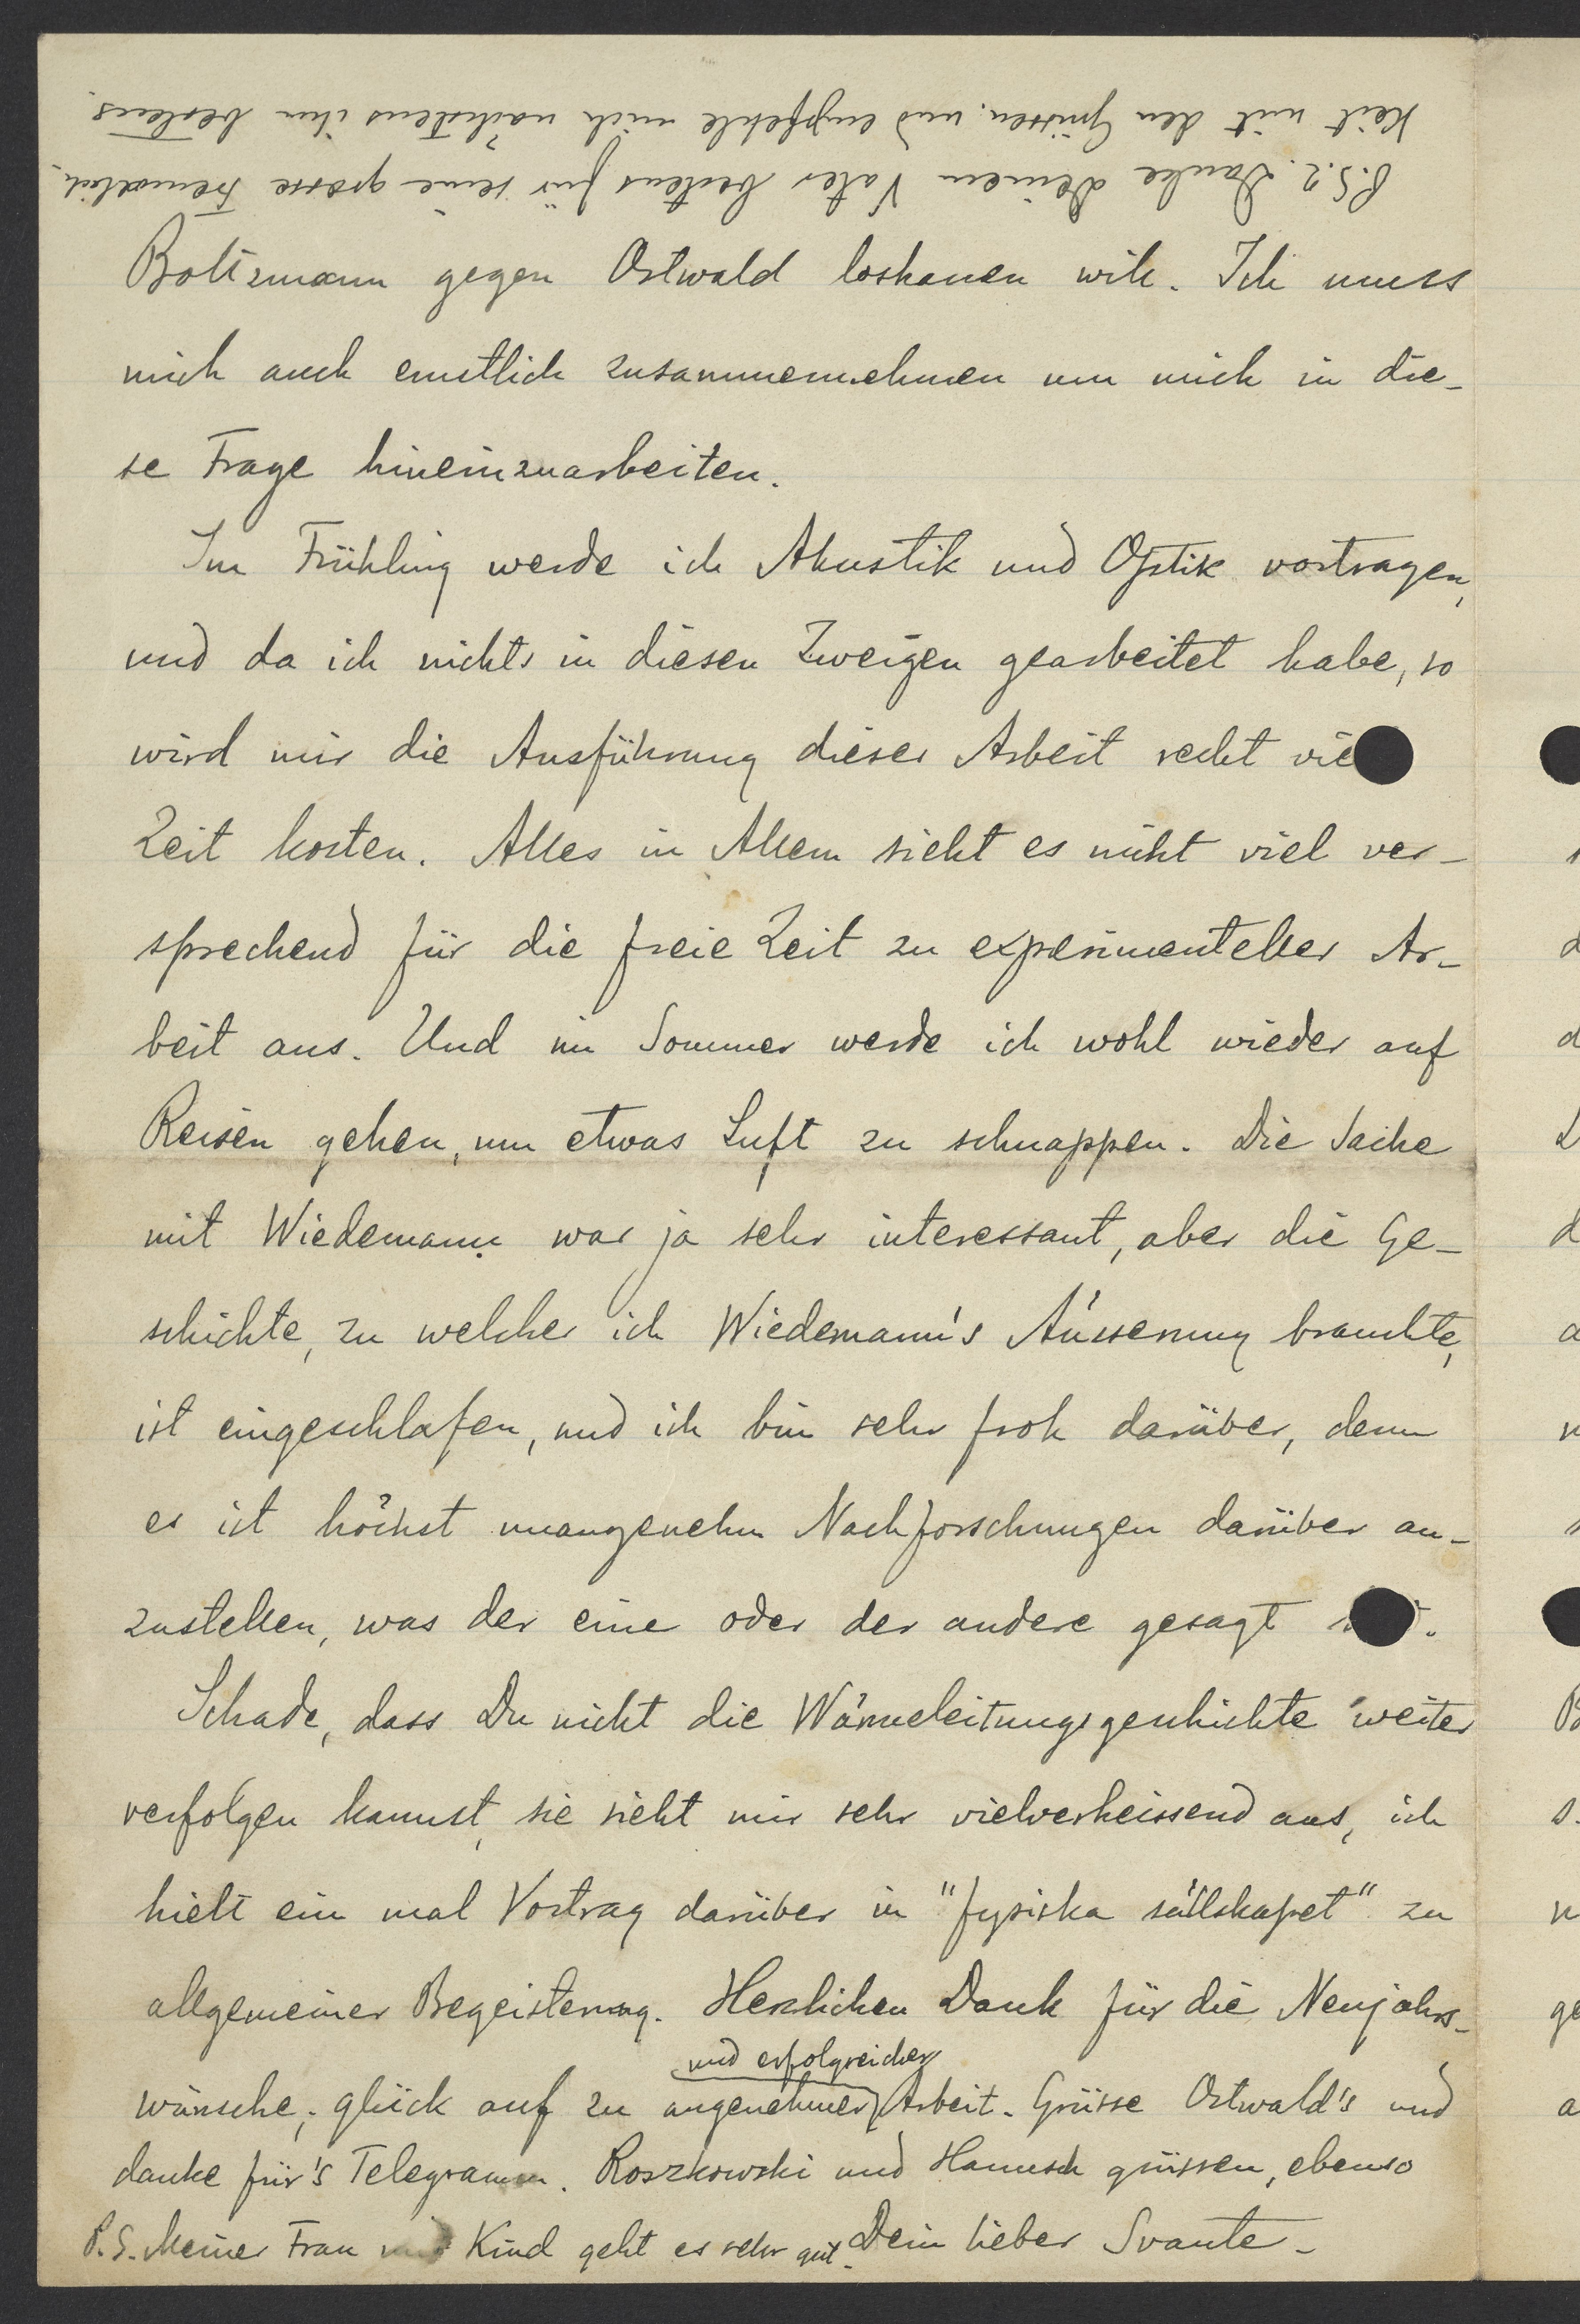 P.S. 2. Danke Deinem Vater bestens für seine grosse Freundlich-
keit mit den Grüssen, und empfehle mich nächstens ihm bestens.
Boltzmann gegen Ostwald loshauen will. Ich muss
mich auch ernstlich zusammennehmen um mich in die-
se Frage hineinzuarbeiten.
Im Frühling werde ich Akustik und Optik vortragen,
und da ich nichts in diesen Zweigen gearbeitet habe, so
wird mir die Ausführung dieser Arbeit recht vie
Zeit kosten. Alles in Allem sieht es nicht viel ver-
sprechend für die freie Zeit zu experimenteller Ar-
beit aus. Und im Sommer werde ich wohl wieder auf
Reisen gehen, um etwas Luft zu schnappen. Die Sache
mit Wiedemann war ja sehr interessant, aber die Ge-
schichte, zu welcher ich Wiedemann's Äusserung brauchte,
ist eingeschlafen, und ich bin sehr froh darüber, denn
es ist höchst unangenehm Nachforschungen darüber an-
zustellen, was der eine oder der andere gesagt
Schade, dass Du nicht die Wärmeleitungsgeschichte weiter
verfolgen kannst, sie sieht mir sehr vielverheissend aus, ich
hielt ein mal Vortrag darüber in "fysiska sällskapet" zu
allgemeiner Begeisterung. Herzlichen Dank für die Neujahrs-
und erfolgreicher
wünsche; glück auf zu angenehmer Arbeit. Grüsse Ostwald's und
danke für's Telegramm. Roszkowski und Hanusch grüssen, ebenso
Dein lieber Svante.
P.S. Meiner Frau und Kind geht es sehr gut.